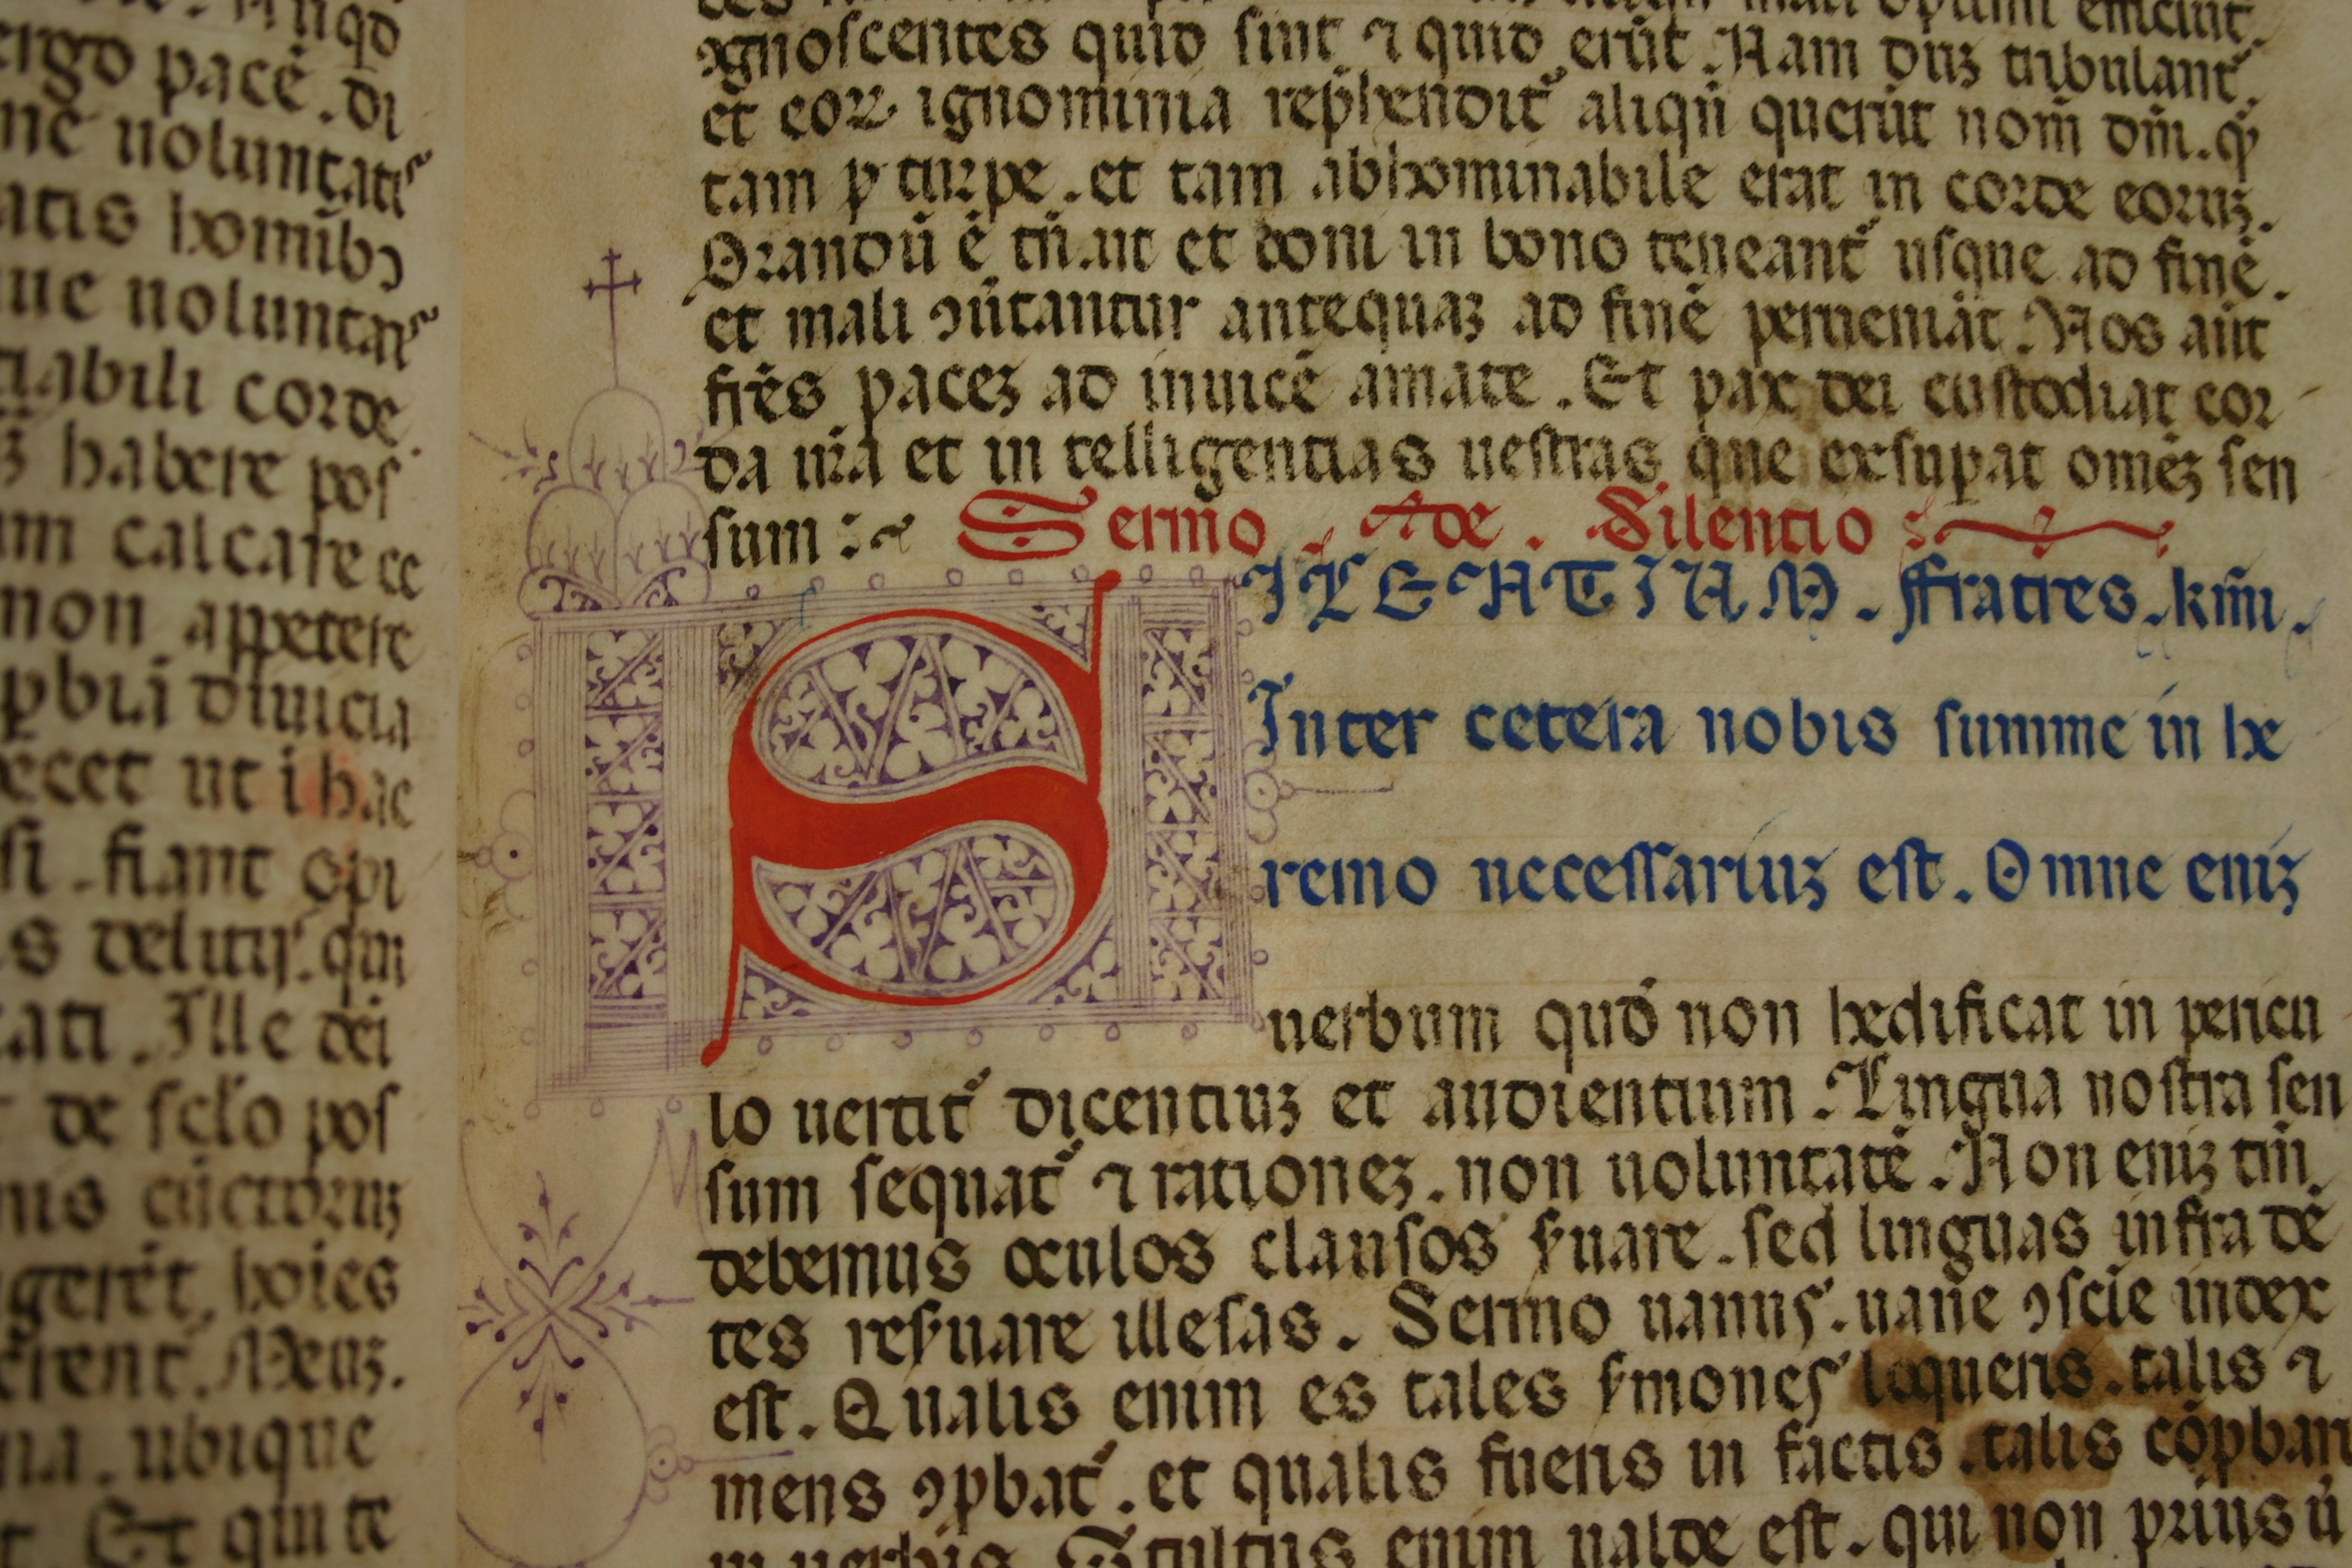 ergo pacē. di
ne uoluntatꝭ
atis homībꝰ
ue uoluntas
iabili corde
ꝫ habere pos
um calcare ce
non appetere
ꝑbiā diuicia
decet ut i hac
si. fiant opi
s delitijs. qui
cati. Ille dei
de sclo pos
nis cūctoruꝫ
geret, hoīes
erent. Meuꝫ.
na. ubique
t. Et qui te
ꝯgnoscentes quid sint ⁊ quid erūt. Nam duꝫ tribulant᷑.
et eoꝝ ignominia rep̄hendit᷑ aliqñ querūt nom̄ dm̄. qꝫ
tam p turpe. et tam abhominabile erat in corde eoruꝫ.
Orandū ē tn̄. ut et boni in bono teneant᷑ usque ad finē.
et mali ꝯūtantur antequaꝫ ad finē perueniāt. Nos aūt
fr̄es paceꝫ ad inuicē amate. Et pax dei custodiat cor
da ur̄a et in telligentias uestras que exsuꝑat omēꝫ sen
sum :
Sermo . de . Silentio
SILENTIUM. Fratres. kmi.
Inter cetera nobis summe in he
remo necessariuꝫ est. Omne eniꝫ
uerbum quod non hedificat in pericu
lo uertit᷑ dicentiuꝫ et audientium. Lingua nostra sen
sum sequat᷑ ⁊ rationeꝫ. non uoluntatē. Non eniꝫ tm̄.
debemus oculos clausos ẜuare. sed linguas infra dē
tes reẜuare illesas. Sermo uanus. uane ꝯscīe index
est. Qualis enim es tales ẜmones loqueris. talis ⁊
mens ꝯpbat᷑. et qualis fueris in factis. talis cōpban
in uerbis. Stultus enim ualde est. qui non prius ū